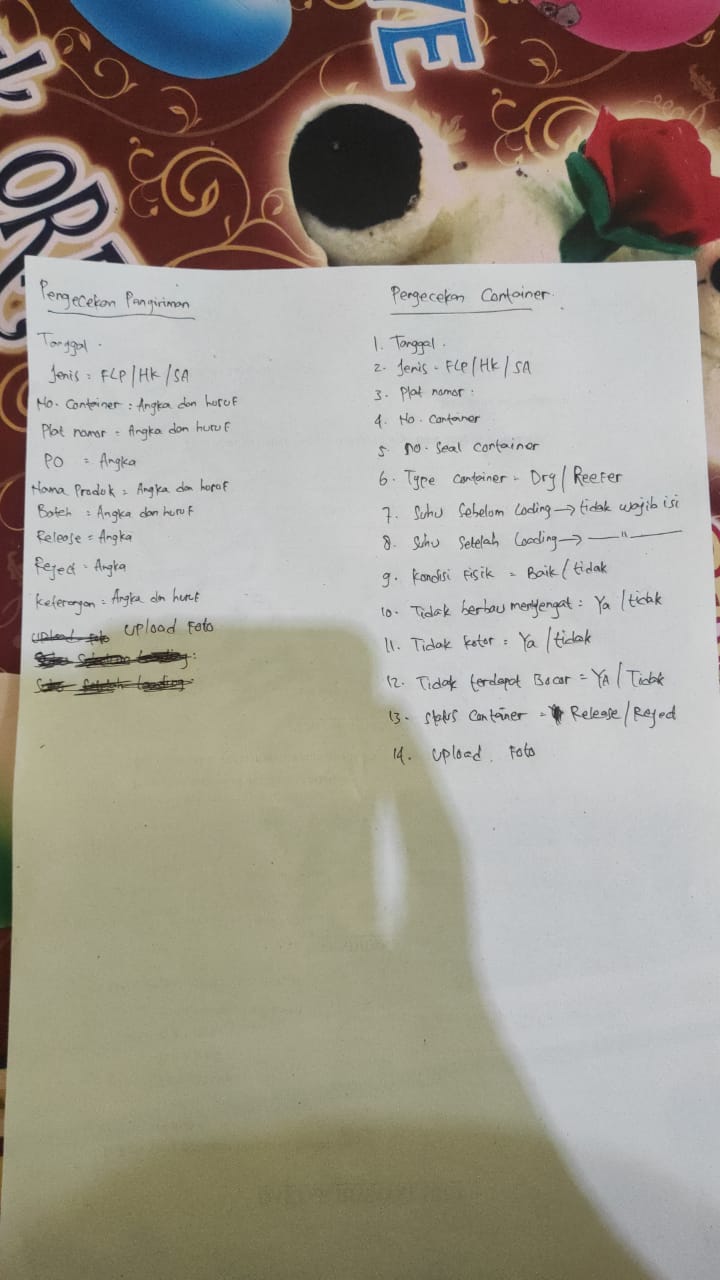 VE
ORE
Pengecekan Pangiriman
Tanggal .
Jenis = FLP / HK / SA
No. Container : Angka dan huruf
Plat nomor = Angka dan huruf
PO = Angka
Nama Produk = Angka dan huruf
Batch : Angka dan huruf
Release = Angka
Reject = Angka
Keterangan = Angka dan huruf
Upload Foto Upload Foto
Suhu Sebelum Loading :
Suhu Setelah Loading :
Pengecekan Container .
1. Tanggal .
2. Jenis = FLP / HK / SA
3. Plat nomor :
4. No. Container
5. no. Seal Container
6. Type Container = Dry / Reefer
7. Suhu Sebelum Loding → tidak wajib isi
8. Suhu Setelah Loading → — " —
9. Kondisi Fisik = Baik / tidak
10. Tidak berbau menyengat = Ya / tidak
11. Tidak kotor = Ya / tidak
12. Tidak terdapat Bocor = YA / Tidak
13. Status Container = Release / Reject
14. Upload. Foto